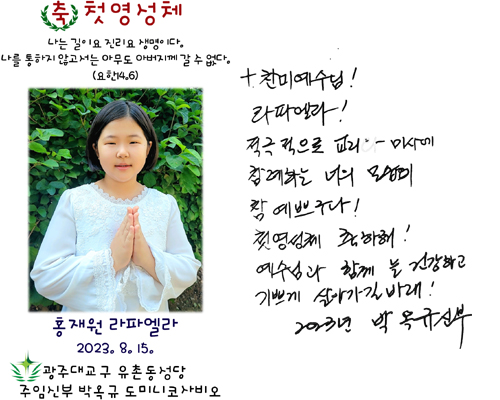 축 첫영성체
나는 길이요 진리요 생명이다.
나를 통하지 않고서는 아무도 아버지께 갈 수 없다.
(요한14.6)
홍재원 라파엘라
2023. 8. 15.
광주대교구 유촌동성당
주임신부 박옥규 도미니코사비오
+ 찬미예수님!
라파엘라!
적극적으로 교리와 미사에
참례하는 너의 모습이
참 예쁘구나!
첫영성체 축하해!
예수님과 함께 늘 건강하고
기쁘게 살아가길 바래!
2023년 박옥규신부